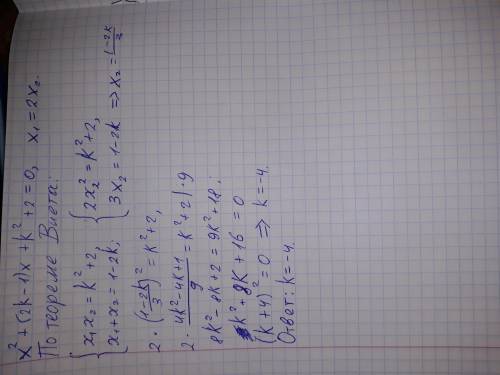 x² + (2k-1)x + k² + 2 = 0, x₁ = 2x₂.
По теореме Виета:
{ x₁x₂ = k² + 2, { 2x₂² = k² + 2,
{ x₁ + x₂ = 1-2k; { 3x₂ = 1-2k => x₂ = (1-2k)/3
2 · ((1-2k)/3)² = k² + 2,
2 · (4k² - 4k + 1)/9 = k² + 2 | · 9
8k² - 8k + 2 = 9k² + 18.
k² + 8k + 16 = 0
(k + 4)² = 0 => k = -4.
Ответ: k = -4.